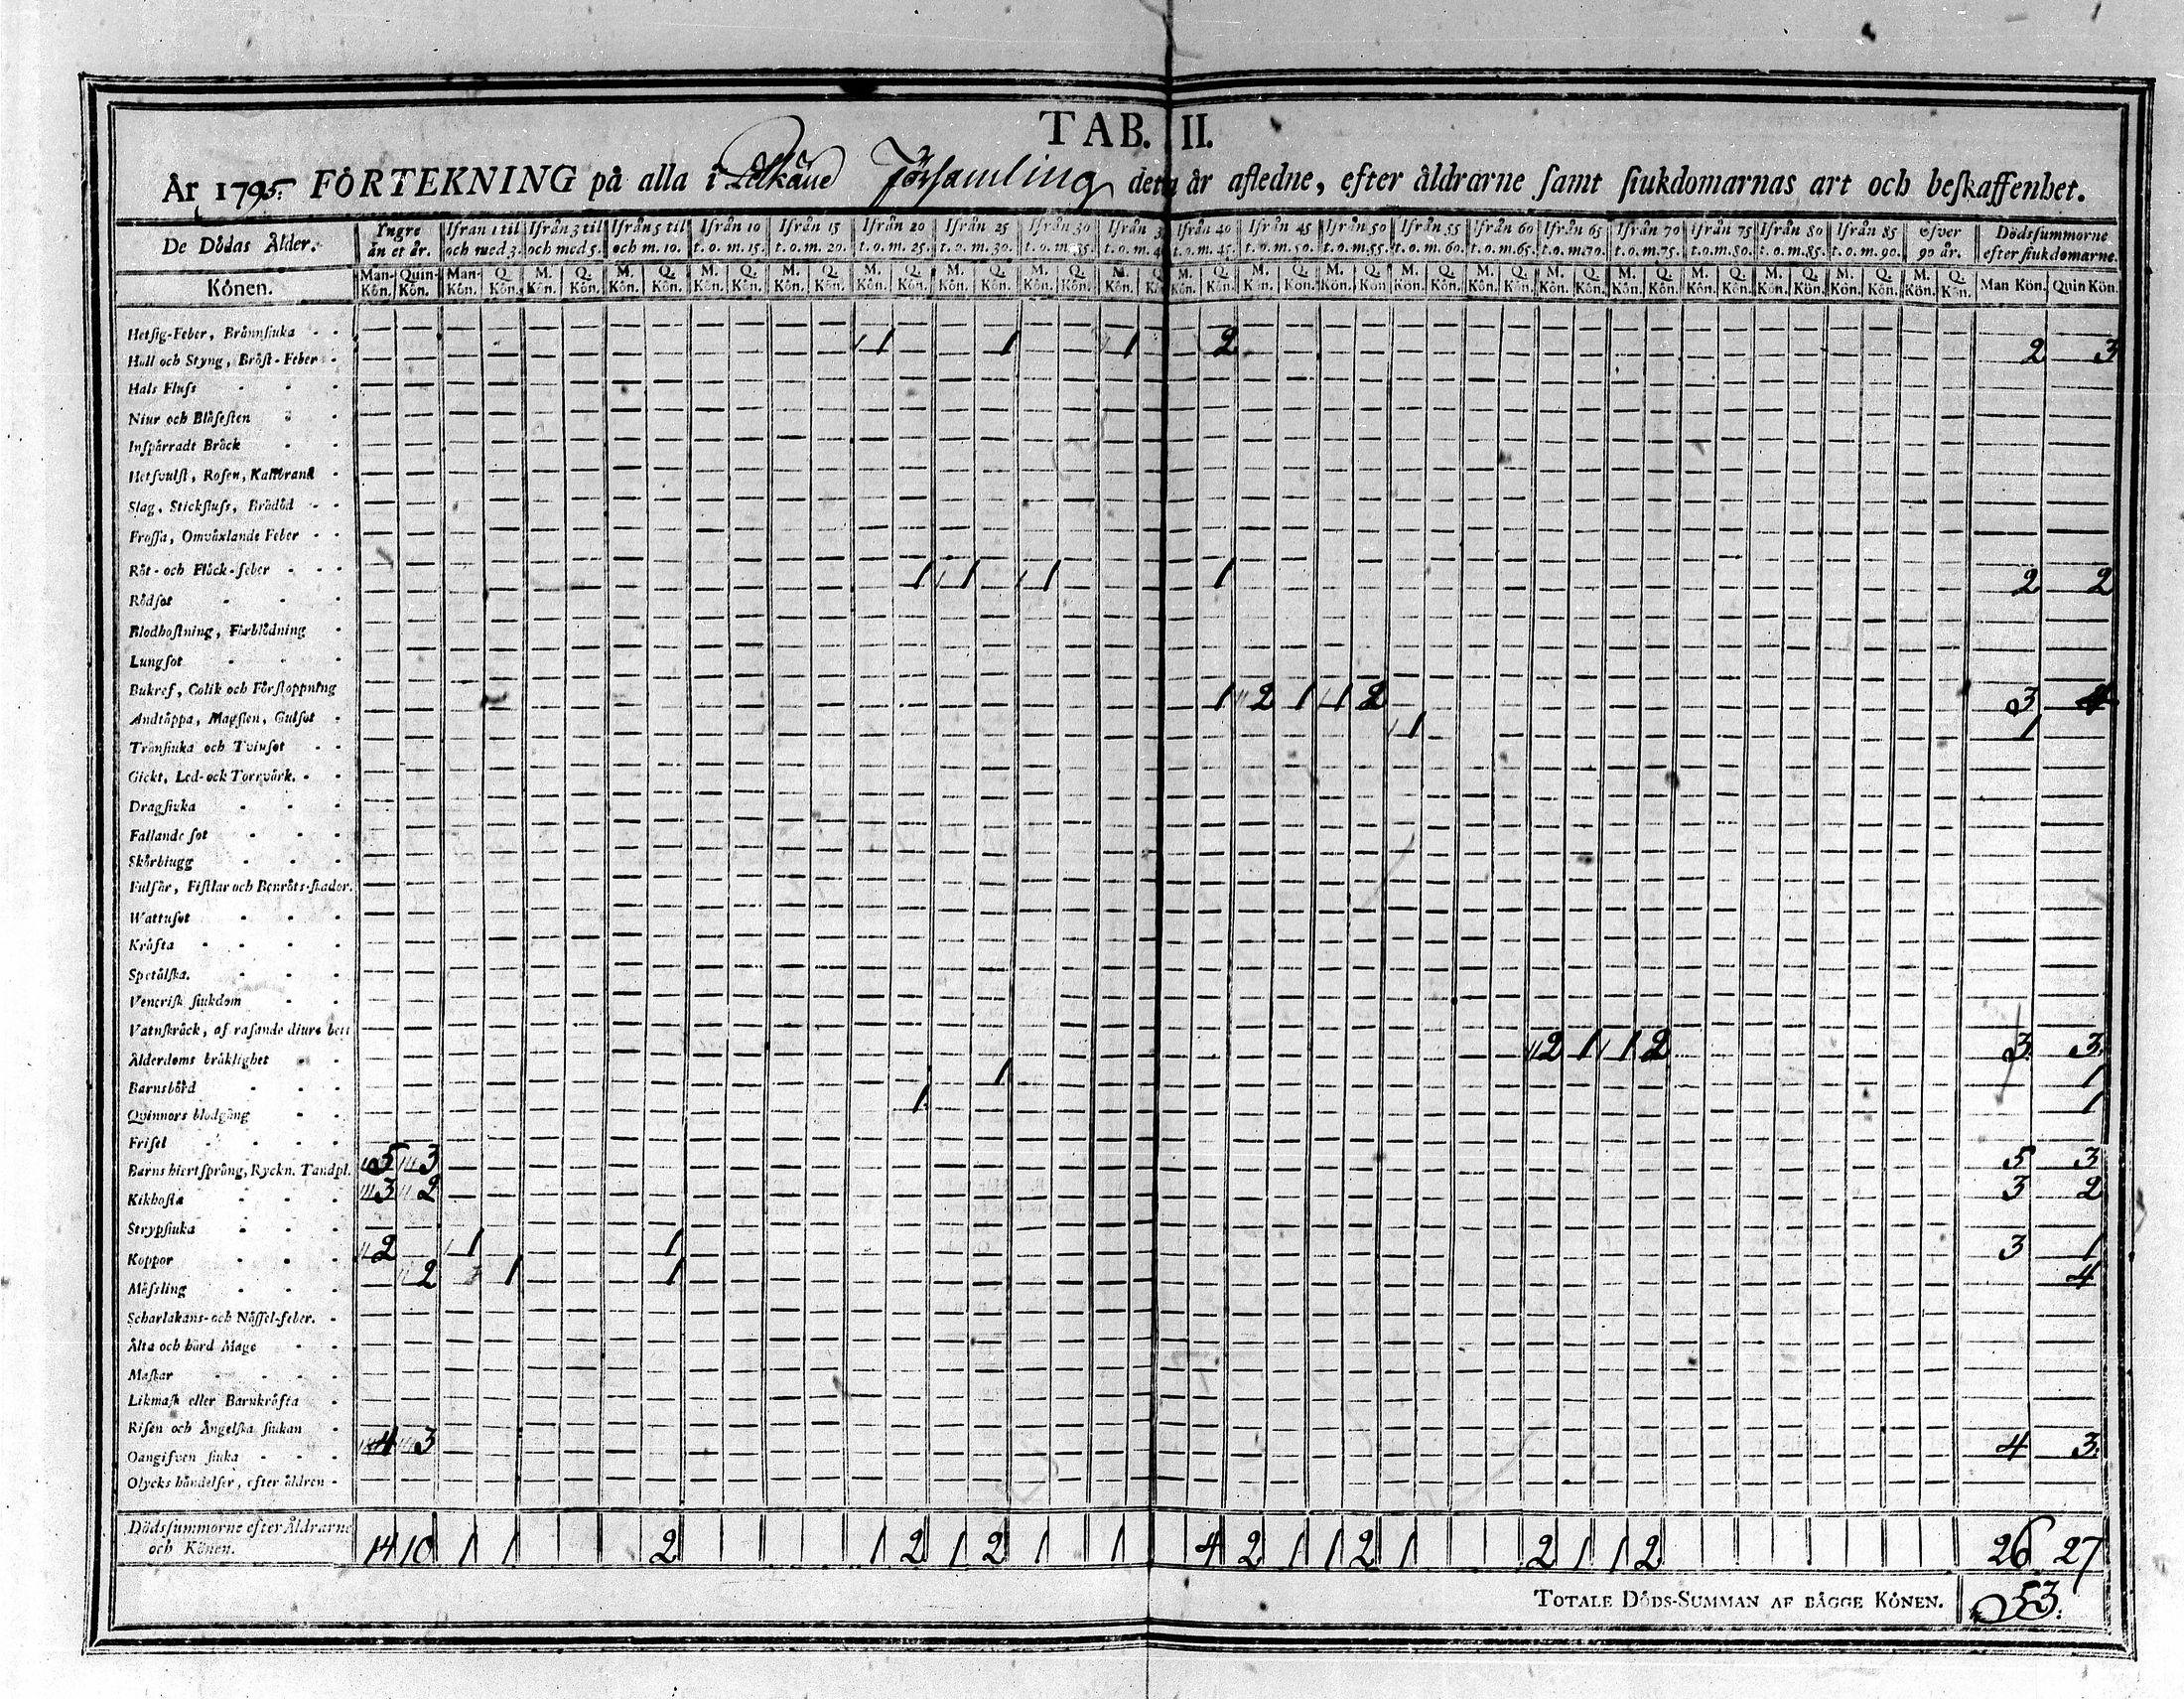 TAB. II.
År 1795. FÖRTEKNING på alla i Pelkäne Församling detta år afledne, efter åldrarne samt siukdomarnas art och beskaffenhet.
De Dödas Ålder. Yngre än et år. Ifrån 1 til och med 3. Ifrån 3 til och med 5. Ifrån 5 til och m. 10. Ifrån 10 t. o. m. 15. Ifrån 15 t. o. m. 20. Ifrån 20 t. o. m. 25. Ifrån 25 t. o. m. 30. Ifrån 30 t. o. m. 35. Ifrån 3 t. o. m. 4 Ifrån 40 t. o. m. 45. Ifrån 45 t. o. m. 50. Ifrån 50 t. o. m. 55. Ifrån 55 t. o. m. 60. Ifrån 60 t. o. m. 65. Ifrån 65 t. o. m. 70. Ifrån 70 t. o. m. 75. Ifrån 75 t. o. m. 80. Ifrån 80 t. o. m. 85. Ifrån 85 t. o. m. 90. Öfver 90 år. Dödsfummorne efter siukdomarne.
Könen. Man-Kön. Quin-Kön. Man-Kön. Q. Kön. M. Kön. Q. Kön. M. Kön. Q. Kön. M. Kön. Q. Kön. M. Kön. Q. Kön. M. Kön. Q. Kön. M. Kön. Q. Kön. M. Kön. Q. Kön. M. Kön. Q. M. Kön. Q. Kön. M. Kön. Q. Kön. M. Kön. Q. Kön. M. Kön. Q. Kön. M. Kön. Q. Kön. M. Kön. Q. Kön. M. Kön. Q. Kön. M. Kön. Q. Kön. M. Kön. Q. Kön. M. Kön. Q. Kön. M. Kön. Q. Kön. Man Kön. Quin Kön.
Hetsig-Feber, Brännsiuka
Håll och Styng, Bröst-Feber 1 1 1 2 2 3
Hals Fluss
Niur och Blåsesten
Inspärradt Bråck
Hetsvulst, Rosen, Kallbrand
Slag, Stickfluss, Brådöd
Frossa, Omväxlande Feber
Röt- och Fläck-feber 1 1 1 1 2 2
Rödsot
Blodhostning, Förblödning
Lungsot
Bukref, Colik och Förstoppning
Andtäppa, Magsten, Gulsot 1 2 1 1 2 3 4
Trånsiuka och Tvinsot 1 1
Gickt, Led- och Torrvärk.
Dragsiuka
Fallande sot
Skörbiugg
Fulsår, Fistlar och Benröts-skador.
Wattusot
Kräfta
Spetälska.
Venerisk siukdom
Vatnskräck, af rasande diurs bett
Ålderdoms bräklighet 2 1 1 2 3 3.
Barnsbörd 1 1
Quinnors blodgång 1. 1
Frisel
Barns hiertsprång, Ryckn. Tandpl. 5 3 5 3
Kikhosta 3 2 3 2
Strypsiuka
Koppor 2 1 1 3 1
Mässling 2 1 1 4
Scharlakans- och Nässel-feber.
Älta och hård Mage
Maskar
Likmask eller Barnkräfta
Risen och Ängelska siukan
Oangifven siuka 4 3 4 3.
Olycks händelser, efter åldren
Dödsfummorne efter Åldrarne och Könen. 14 10 1 1 2 1 2 1 2 1 1 4 2 1 1 2 1 2 1 1 2 26 27
TOTALE DÖDS-SUMMAN AF BÄGGE KÖNEN. 53.